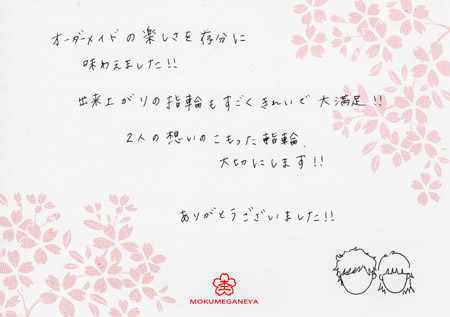 オーダーメイドの楽しさを存分に
味わえました!!
出来上がりの指輪もすごくきれいで大満足!!
2人の想いのこもった指輪、
大切にします!!
ありがとうございました!!
MOKUMEGANEYA